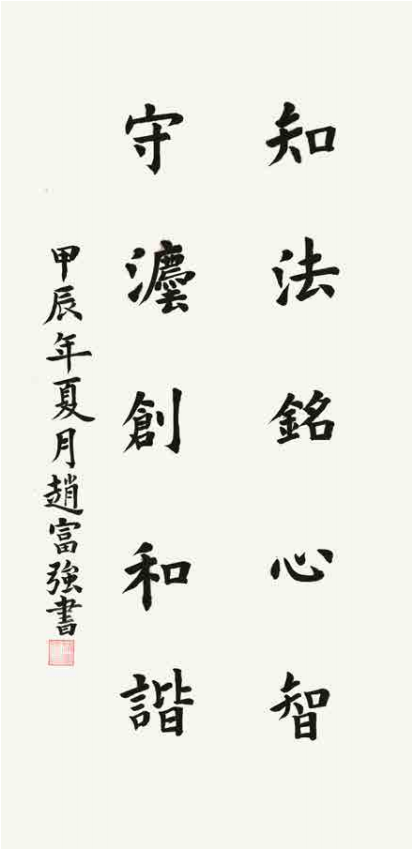 知法銘心智
守灋創和諧
甲辰年夏月趙富強書